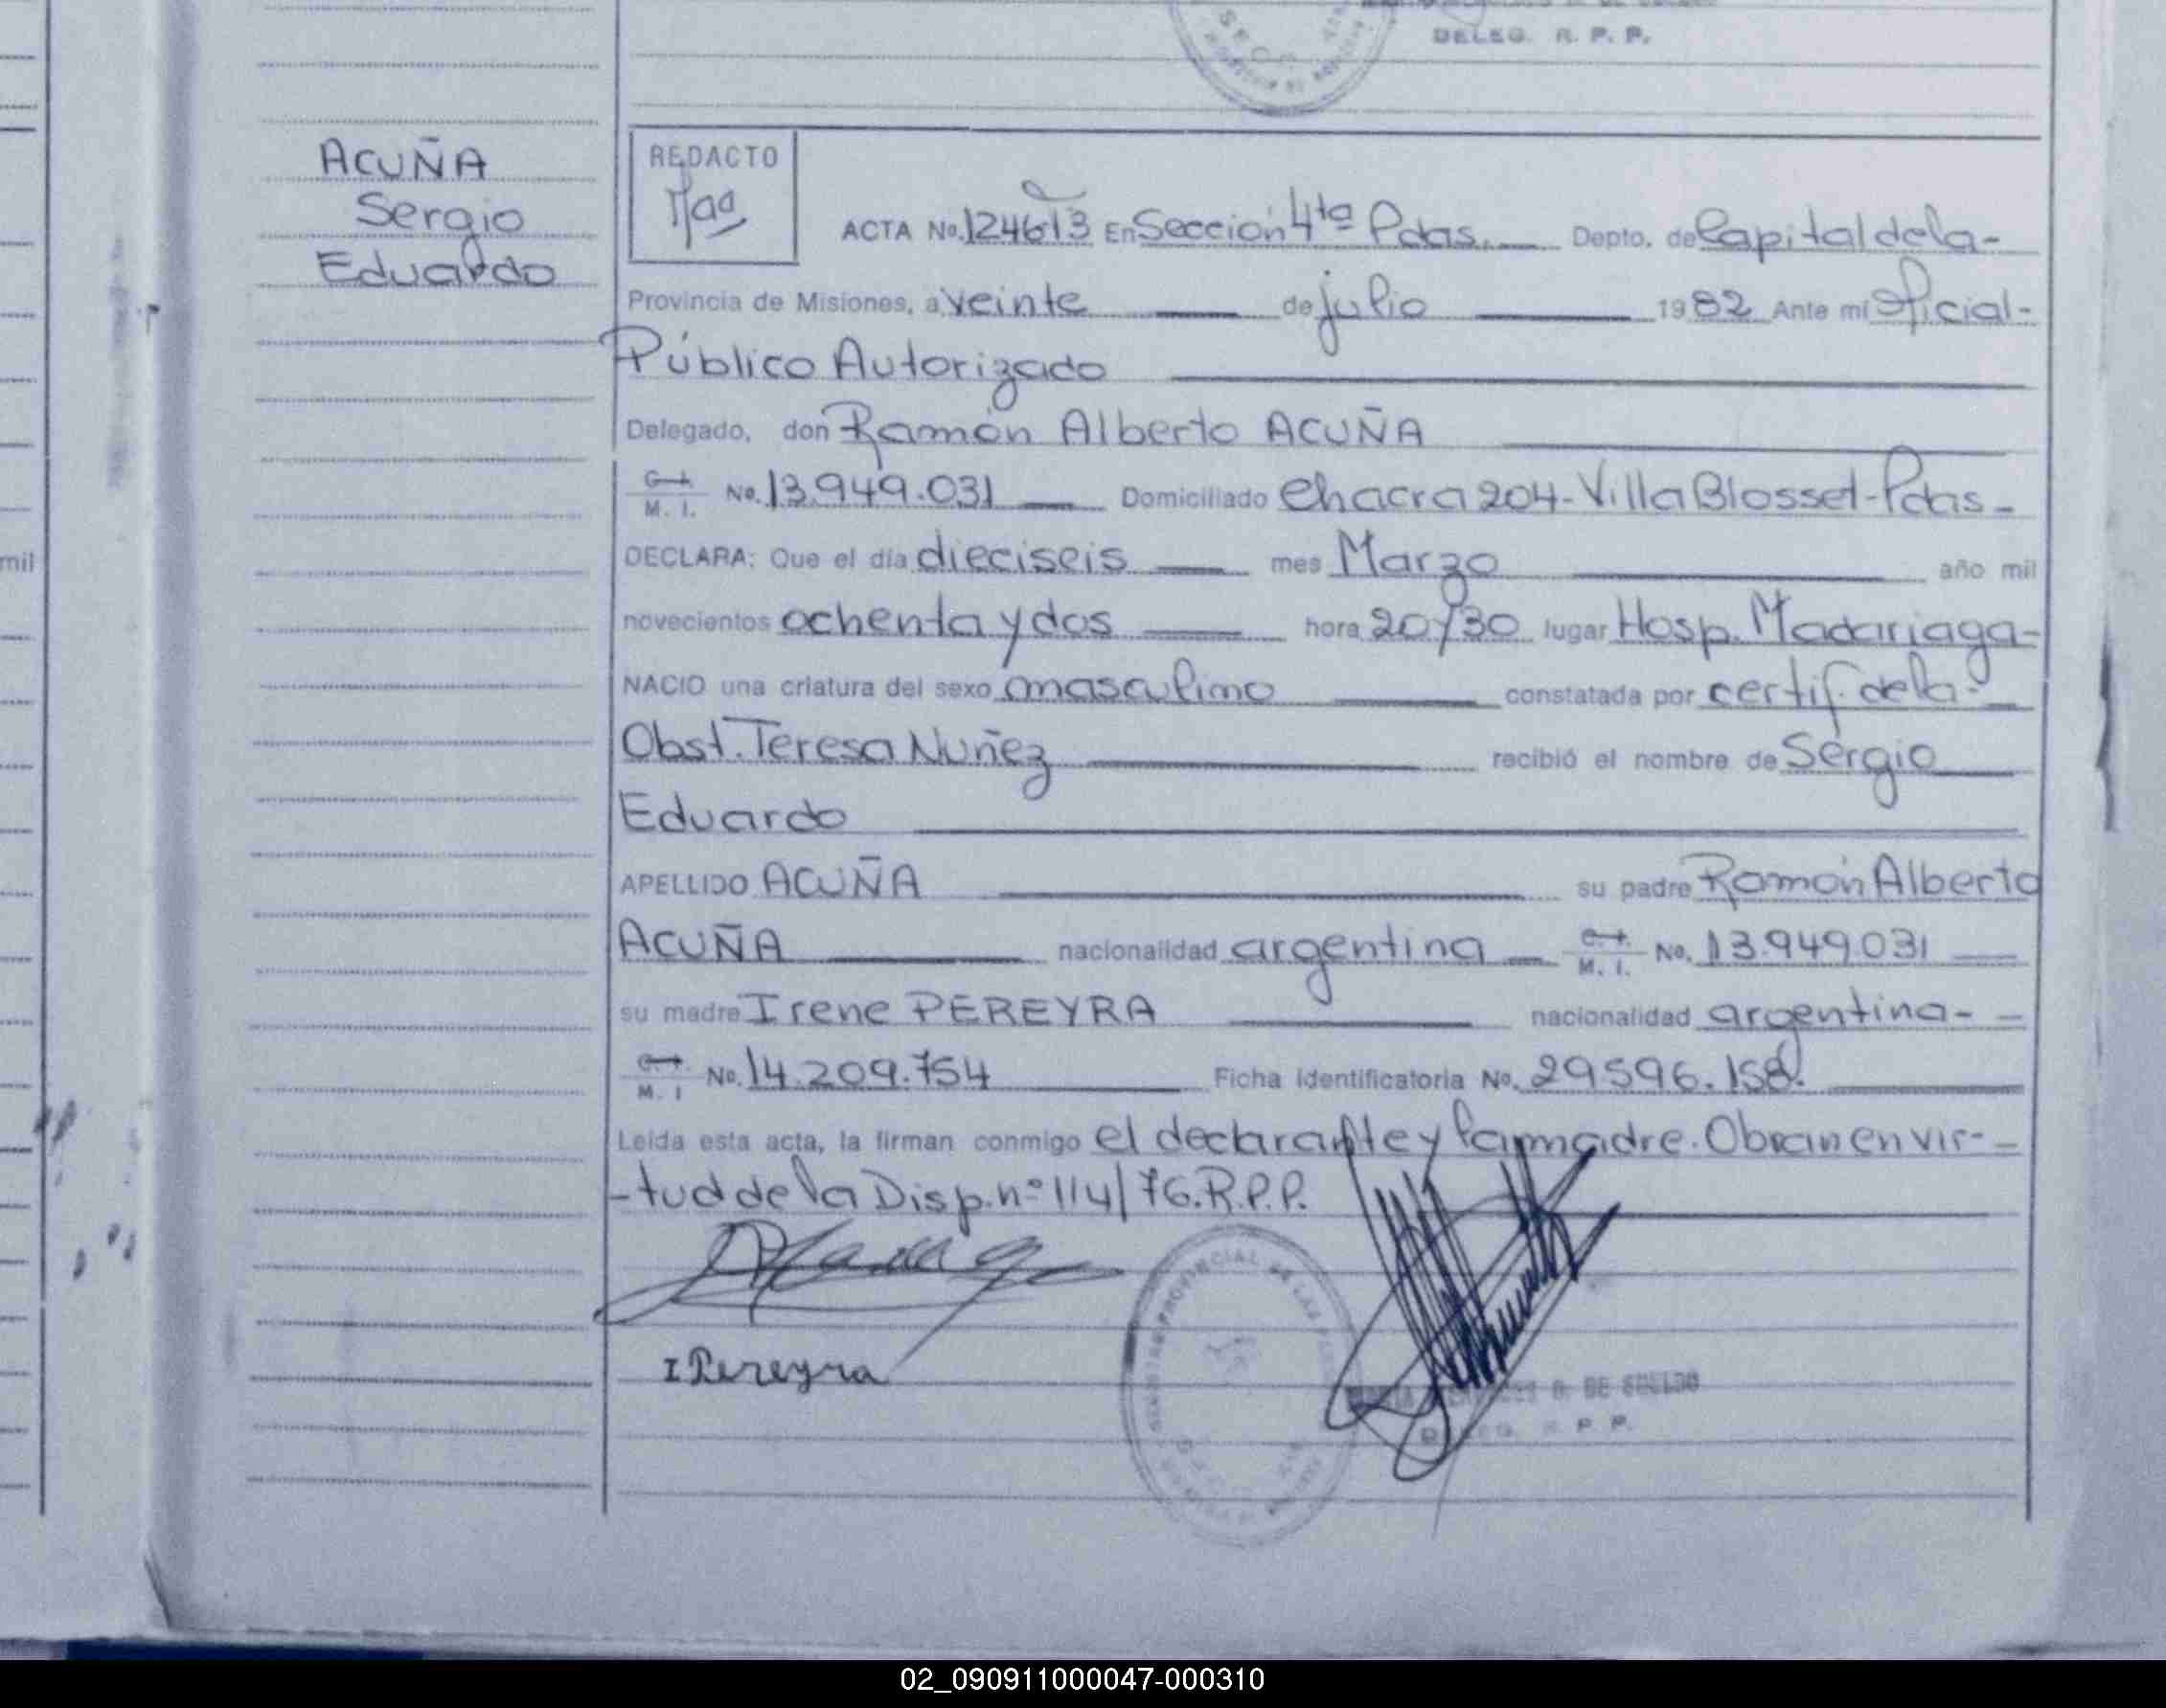 DELEG. R. P. P.
ACUÑA
Sergio
Eduardo
REDACTO
ACTA No. 124613 En Sección 4ta Pdas. Depto. de Capital de la-
Provincia de Misiones, a veinte de julio 1982 Ante mi Oficial-
Público Autorizado
Delegado, don Ramón Alberto ACUÑA
M. I. No. 13.949.031 Domiciliado Chacra 204-Villa Blosset-Pdas-
DECLARA: Que el día dieciseis mes Marzo año mil
mil
novecientos ochenta y dos hora 20y30 lugar Hosp. Madariaga-
NACIO una criatura del sexo masculino constatada por certif. de la-
Obst. Teresa Nuñez recibió el nombre de Sergio
Eduardo
APELLIDO ACUÑA su padre Ramón Alberto
ACUÑA nacionalidad argentina M. I. No. 13.949.031
su madre Irene PEREYRA nacionalidad argentina-
M. I No. 14.209.754 Ficha Identificatoria No. 29596.158.
Leída esta acta, la firman conmigo el declarante y la madre. Obran en vir-
-tud de la Disp. nº 114/76.R.P.P.
I Pereyra
PROVINCIAL DE LAS
B. DE SUELDO
P. P.
02_090911000047-000310